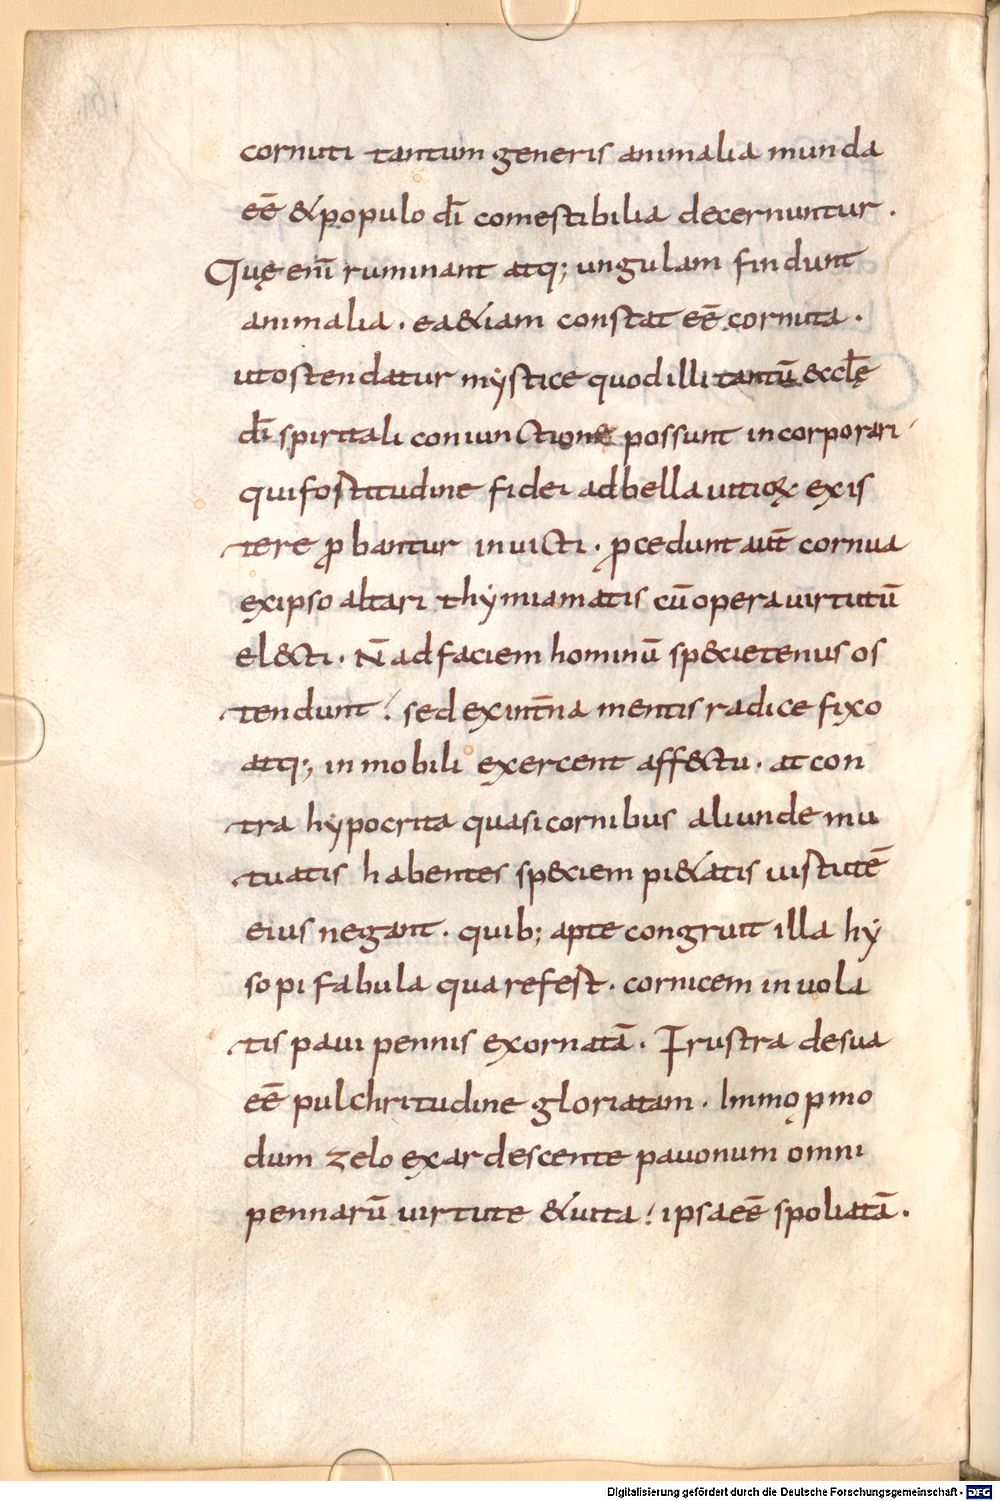 cornuti tantum generis animalia munda
eē & populo dī comestibilia decernuntur.
Quę enī ruminant atq; ungulam findunt
animalia. ea &iam constat eē cornuta.
ut ostendatur mystice quod illi tantū ęcclę
dī spiritali coniunctione possunt incorporari
qui fostitudine fidei ad bella uitioꝝ exis
tere ꝓbantur inuicti. ꝓcedunt aut̄ cornua
ex ipso altari thymiamatis cū opera uirtutū
el&cti. N̄ ad faciem hominū sp&cietenus os
tendunt! sed ex int̄na mentis radice fixo
atq; inmobili exercent aff&ctu. at con
tra hypocrita quasi cornibus aliunde mu
tuatis habentes sp&ciem pi&atis uistutē
eius negant. quib; apte congruit illa hy
sopi fabula qua refest. cornicem inuola
tis paui pennis exornatā. Frustra de sua
eē pulchritudine gloriatam. Immo ꝓ mo
dum zelo exardescente pauonum omni
pennarū uirtute & uita! ipsa eē spoliatā.
Digitalisierung gefördert durch die Deutsche Forschungsgemeinschaft - DFG